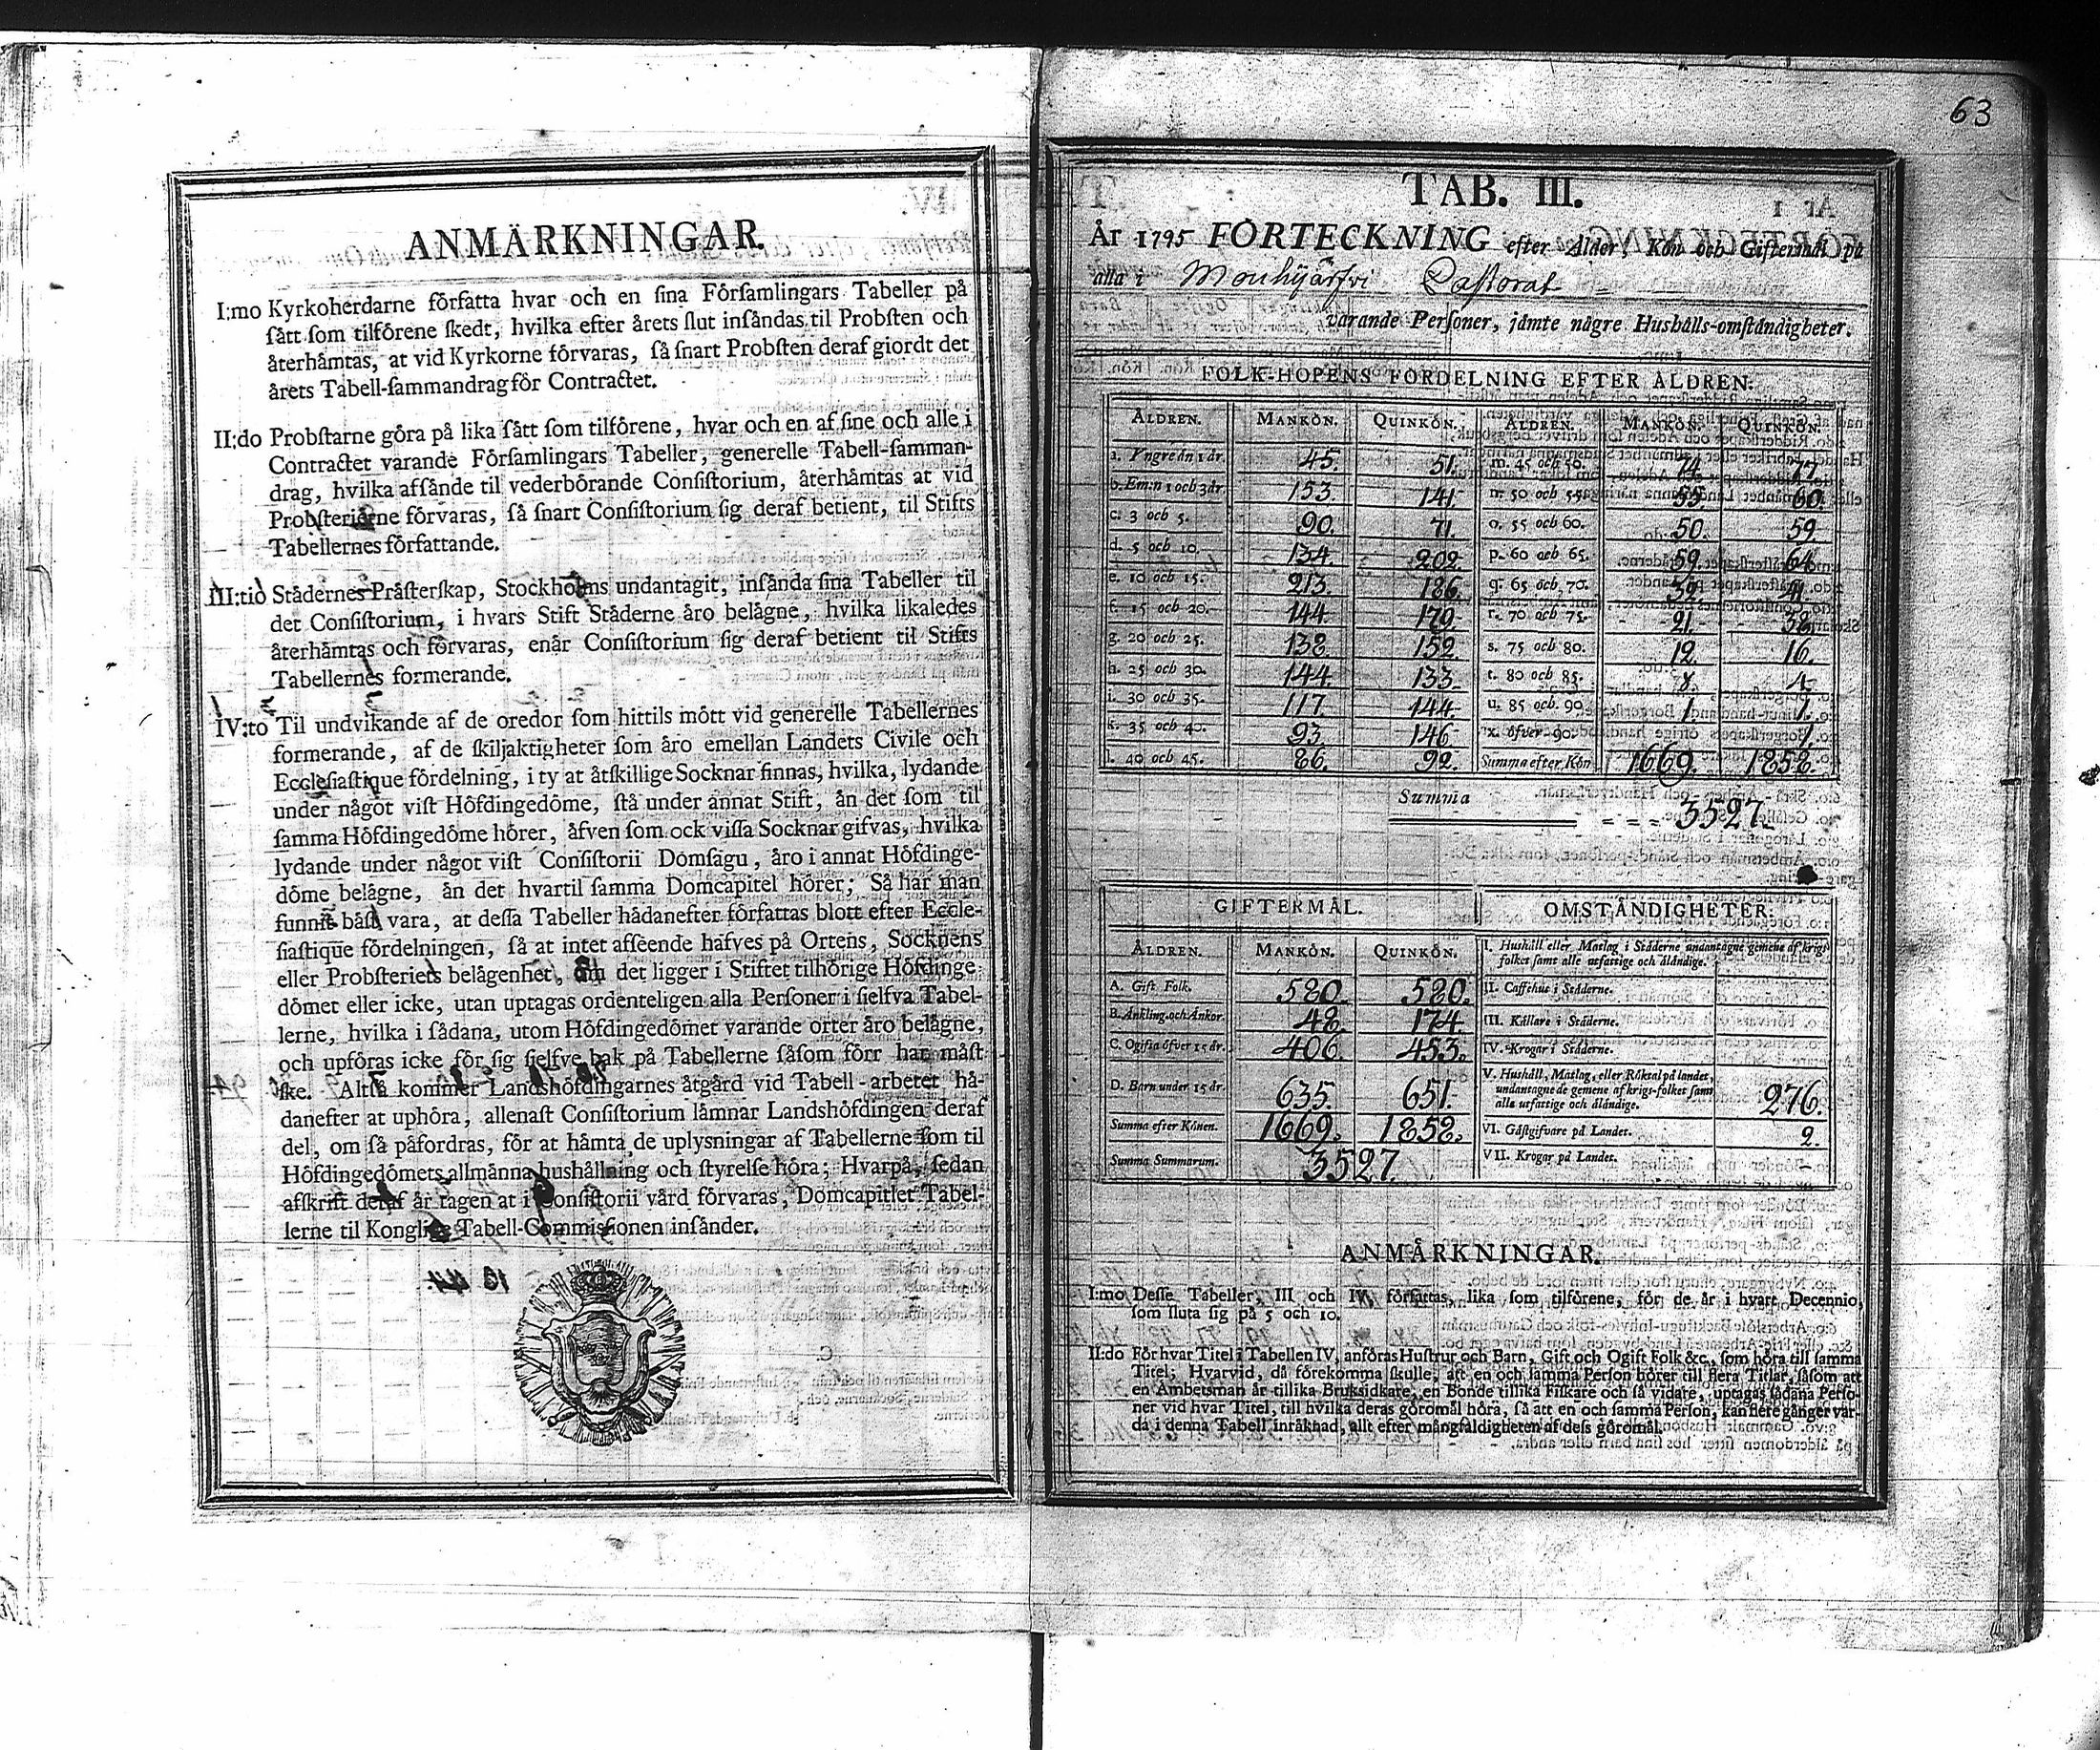 ANMÄRKNINGAR.
I:mo Kyrkoherdarne författa hvar och en sina Församlingars Tabeller på
sått som tilförene skedt, hvilka efter årets slut insåndas til Probsten och
återhämtas, at vid Kyrkorne förvaras, så snart Probsten deraf giordt det
årets Tabell-sammandrag för Contractet.
II:do Probstarne göra på lika sått som tilförene, hvar och en af sine och alle i
Contractet varande Församlingars Tabeller, generelle Tabell-samman-
drag, hvilka afsånde til vederbörande Consistorium, återhåmtas at vid
Probsterierne förvaras, så snart Consistorium sig deraf betient, til Stifts
Tabellernes författande.
III:tio Stådernes Pråsterskap, Stockholms undantagit, insånda sina Tabeller til
det Consistorium, i hvars Stift Ståderne åro belågne, hvilka likaledes
återhåmtas och förvaras, enår Consistorium sig deraf betient til Stifts
Tabellernes formerande.
IV:to Til undvikande af de oredor som hittils mött vid generelle Tabellernes
formerande, af de skiljaktigheter som åro emellan Landets Civile och
Ecclesiastique fördelning, i ty at åtskillige Socknar finnas, hvilka, lydande
under något vist Höfdingedöme, stå under annat Stift, ån det som til
samma Höfdingedöme hörer, åfven som ock vissa Socknar gifvas, hvilka
lydande under något vist Consistorii Domsagu, åro i annat Höfdinge-
döme belågne, ån det hvartil samma Domcapitel hörer; Så har man
funnit båst vara, at dessa Tabeller hådanefter författas blott efter Eccle-
siastique fördelningen, så at intet afseende hafves på Ortens, Socknens
eller Probsteriets belågenhet, om det ligger i Stiftet tilhörige Höfdinge-
dömet eller icke, utan uptagas ordenteligen alla Personer i sielfva Tabel-
lerne, hvilka i sådana, utom Höfdingedömet varande orter åro belågne,
och upföras icke för sig sielfve bak på Tabellerne såsom förr har måst
ske. Altså kommer Landshöfdingarnes åtgård vid Tabell-arbetet hå-
danefter at uphöra, allenast Consistorium låmnar Landshöfdingen deraf
del, om så påfordras, för at håmta de uplysningar af Tabellerne som til
Höfdingedömets allmånna hushållning och styrelse höra; Hvarpå, sedan
afskrift deraf år tagen at i Consistorii vård förvaras, Domcapitlet Tabel-
lerne til Kongliga Tabell-Commissionen insånder.
63
TAB. III.
År 1795 FÖRTECKNING efter Ålder, Kön och Giftermål på
alla i Mouhijärfvi Pastorat
varande Personer, jämte någre Hushålls-omståndigheter.
FOLK-HOPENS FÖRDELNING EFTER ÅLDREN.
ÅLDREN. MANKÖN. QUINKÖN. ÅLDREN. MANKÖN. QUINKÖN.
a. Yngre ån 1 år. 45. 51. m. 45 och 50. 74. 77.
b. Em:n 1 och 3 år. 153. 141. n. 50 och 55. 55. 60.
c. 3 och 5. 90. 71. o. 55 och 60. 50. 59.
d. 5 och 10. 134. 202. p. 60 och 65. 59. 64.
e. 10 och 15. 213. 186. q. 65 och 70. 32. 41.
f. 15 och 20. 144. 179. r. 70 och 75. 21. 32.
g. 20 och 25. 138. 152. s. 75 och 80. 12. 16.
h. 25 och 30. 144. 133. t. 80 och 85. 8. 4.
i. 30 och 35. 117. 144. u. 85 och 90. 1. 1.
k. 35 och 40. 93. 146. x. öfver 90. 1.
l. 40 och 45. 86. 92. Summa efter Kön 1669. 1858.
Summa 3527.
GIFTERMÅL. OMSTÅNDIGHETER.
ÅLDREN. MANKÖN. QUINKÖN.
I. Hushåll eller Matlag i Ståderne undantagne gemene af krigs-
folket samt alle utfattige och ålåndige.
A. Gift Folk. 580. 580. II. Caffehus i Ståderne.
B. Ånkling. och Ånkor. 48. 174. III. Kållare i Ståderne.
C. Ogifta öfver 15 år. 406. 453. IV. Krogar i Ståderne.
D. Barn under 15 år. 635. 651. V. Hushåll, Matlag, eller Röktal på landet,
undantagne de gemene af krigs-folket samt
alla utfattige och ålåndige. 276.
Summa efter Könen. 1669. 1858. VI. Gåstgifvare på Landet. 2.
Summa Summarum. 3527. VII. Krogar på Landet.
ANMÅRKNINGAR.
I:mo Desse Tabeller, III och IV, författas, lika som tilförene, för de år i hvart Decennio,
som sluta sig på 5 och 10.
II:do För hvar Titel i Tabellen IV, anföras Hustrur och Barn, Gift och Ogift Folk &c., som höra till samma
Titel; Hvarvid, då förekomma skulle, att en och samma Person hörer till flera Titlar, såsom att
en Åmbetsman år tillika Bruksidkare, en Bonde tillika Fiskare och så vidare, uptagas sådana Perso-
ner vid hvar Titel, till hvilka deras göromål höra, så att en och samma Person, kan flere gånger var-
da i denna Tabell inråknad, allt efter mångfaldigheten af dess göromål.